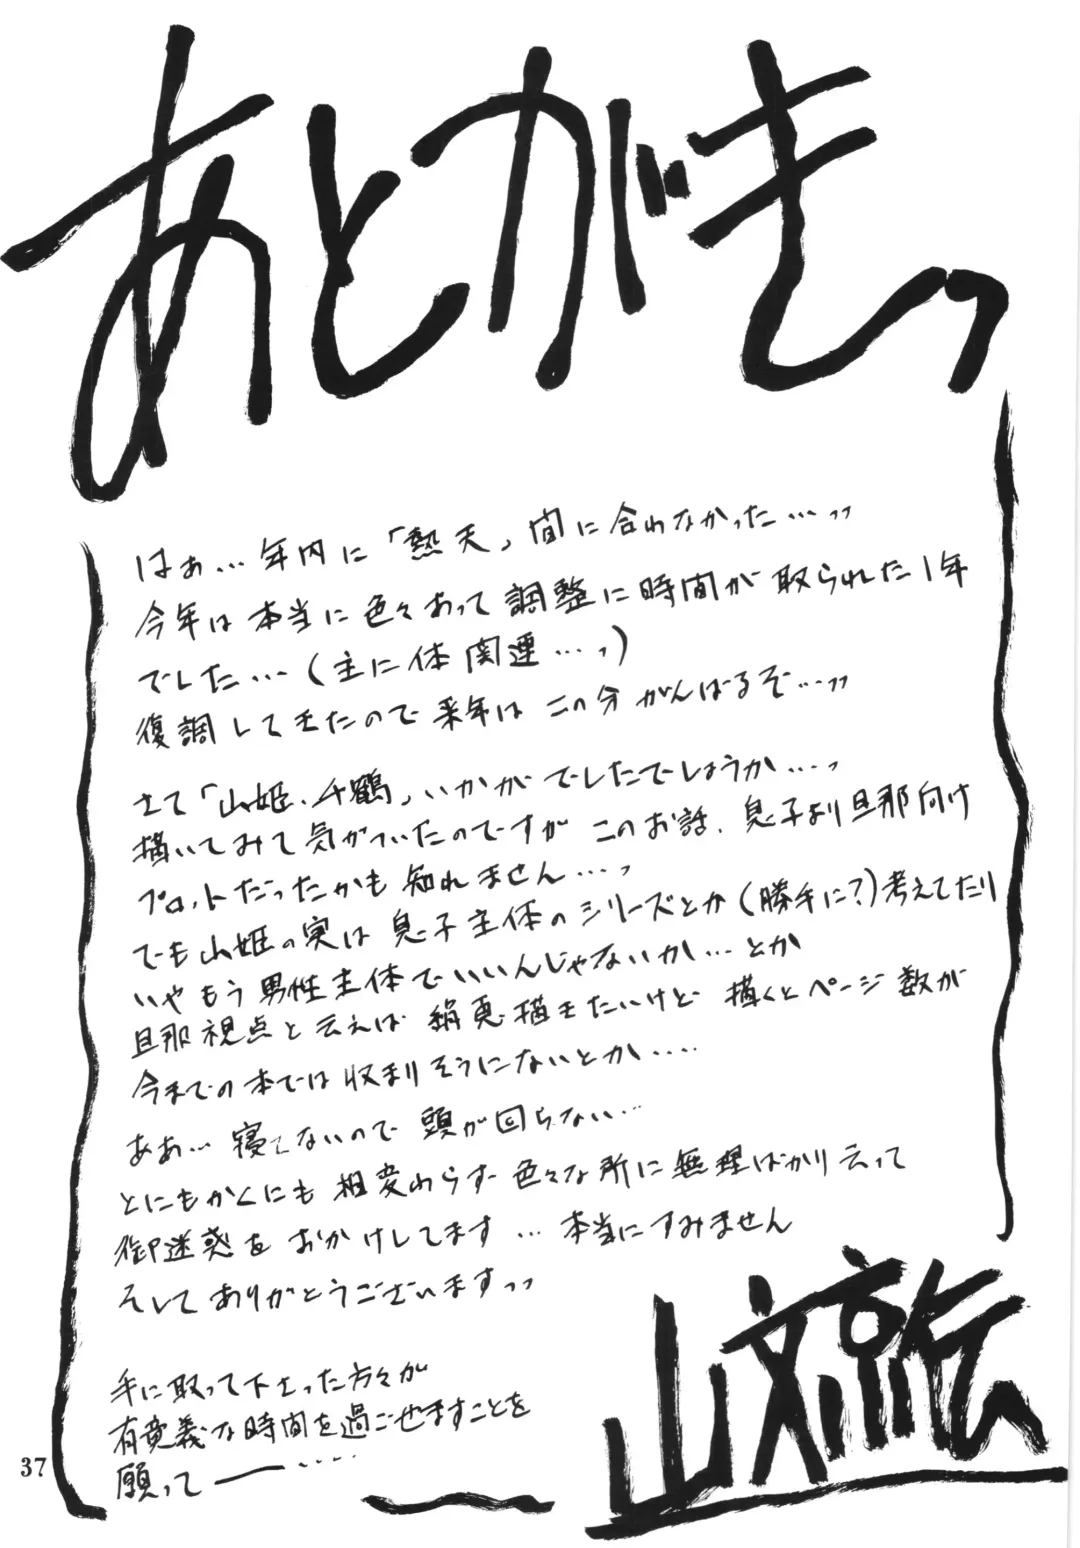 あとがきっ
はぁ…年内に「熱天」間に合わなかった…っっ
今年は本当に色々あって調整に時間が取られた1年
でした…(主に体関連…っ)
復調してきたので来年はこの分がんばるぞ…っっ
さて「山姫、千鶴」いかがでしたでしょうか…っ
描いてみて気がついたのですがこのお話、息子より旦那向け
プロットだったかも知れません…っ
でも山姫の実は息子主体のシリーズとか(勝手に?)考えてたり
いやもう男性主体でいいんじゃないか…とか
旦那視点と云えば絹恵描きたいけど描くとページ数が
今までの本では収まりそうにないとか….
ああ…寝てないので頭が回らない…
とにもかくにも相変わらず色々な所に無理ばかり云って
御迷惑をおかけしてます…本当にすみません
そしてありがとうございますっっ
手に取って下さった方々が
有意義な時間を過ごせますことを
願って――….
山文京伝
37